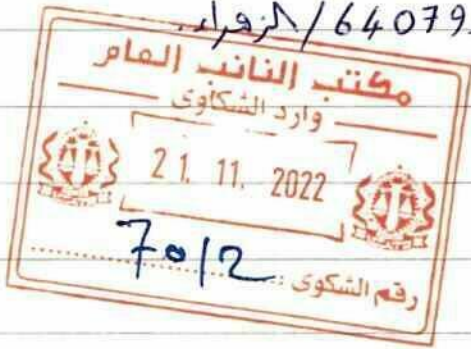 64079 / الزهراء.
مكتب النائب العام
وارد الشكاوى
21. 11. 2022
7012
رقم الشكوى :